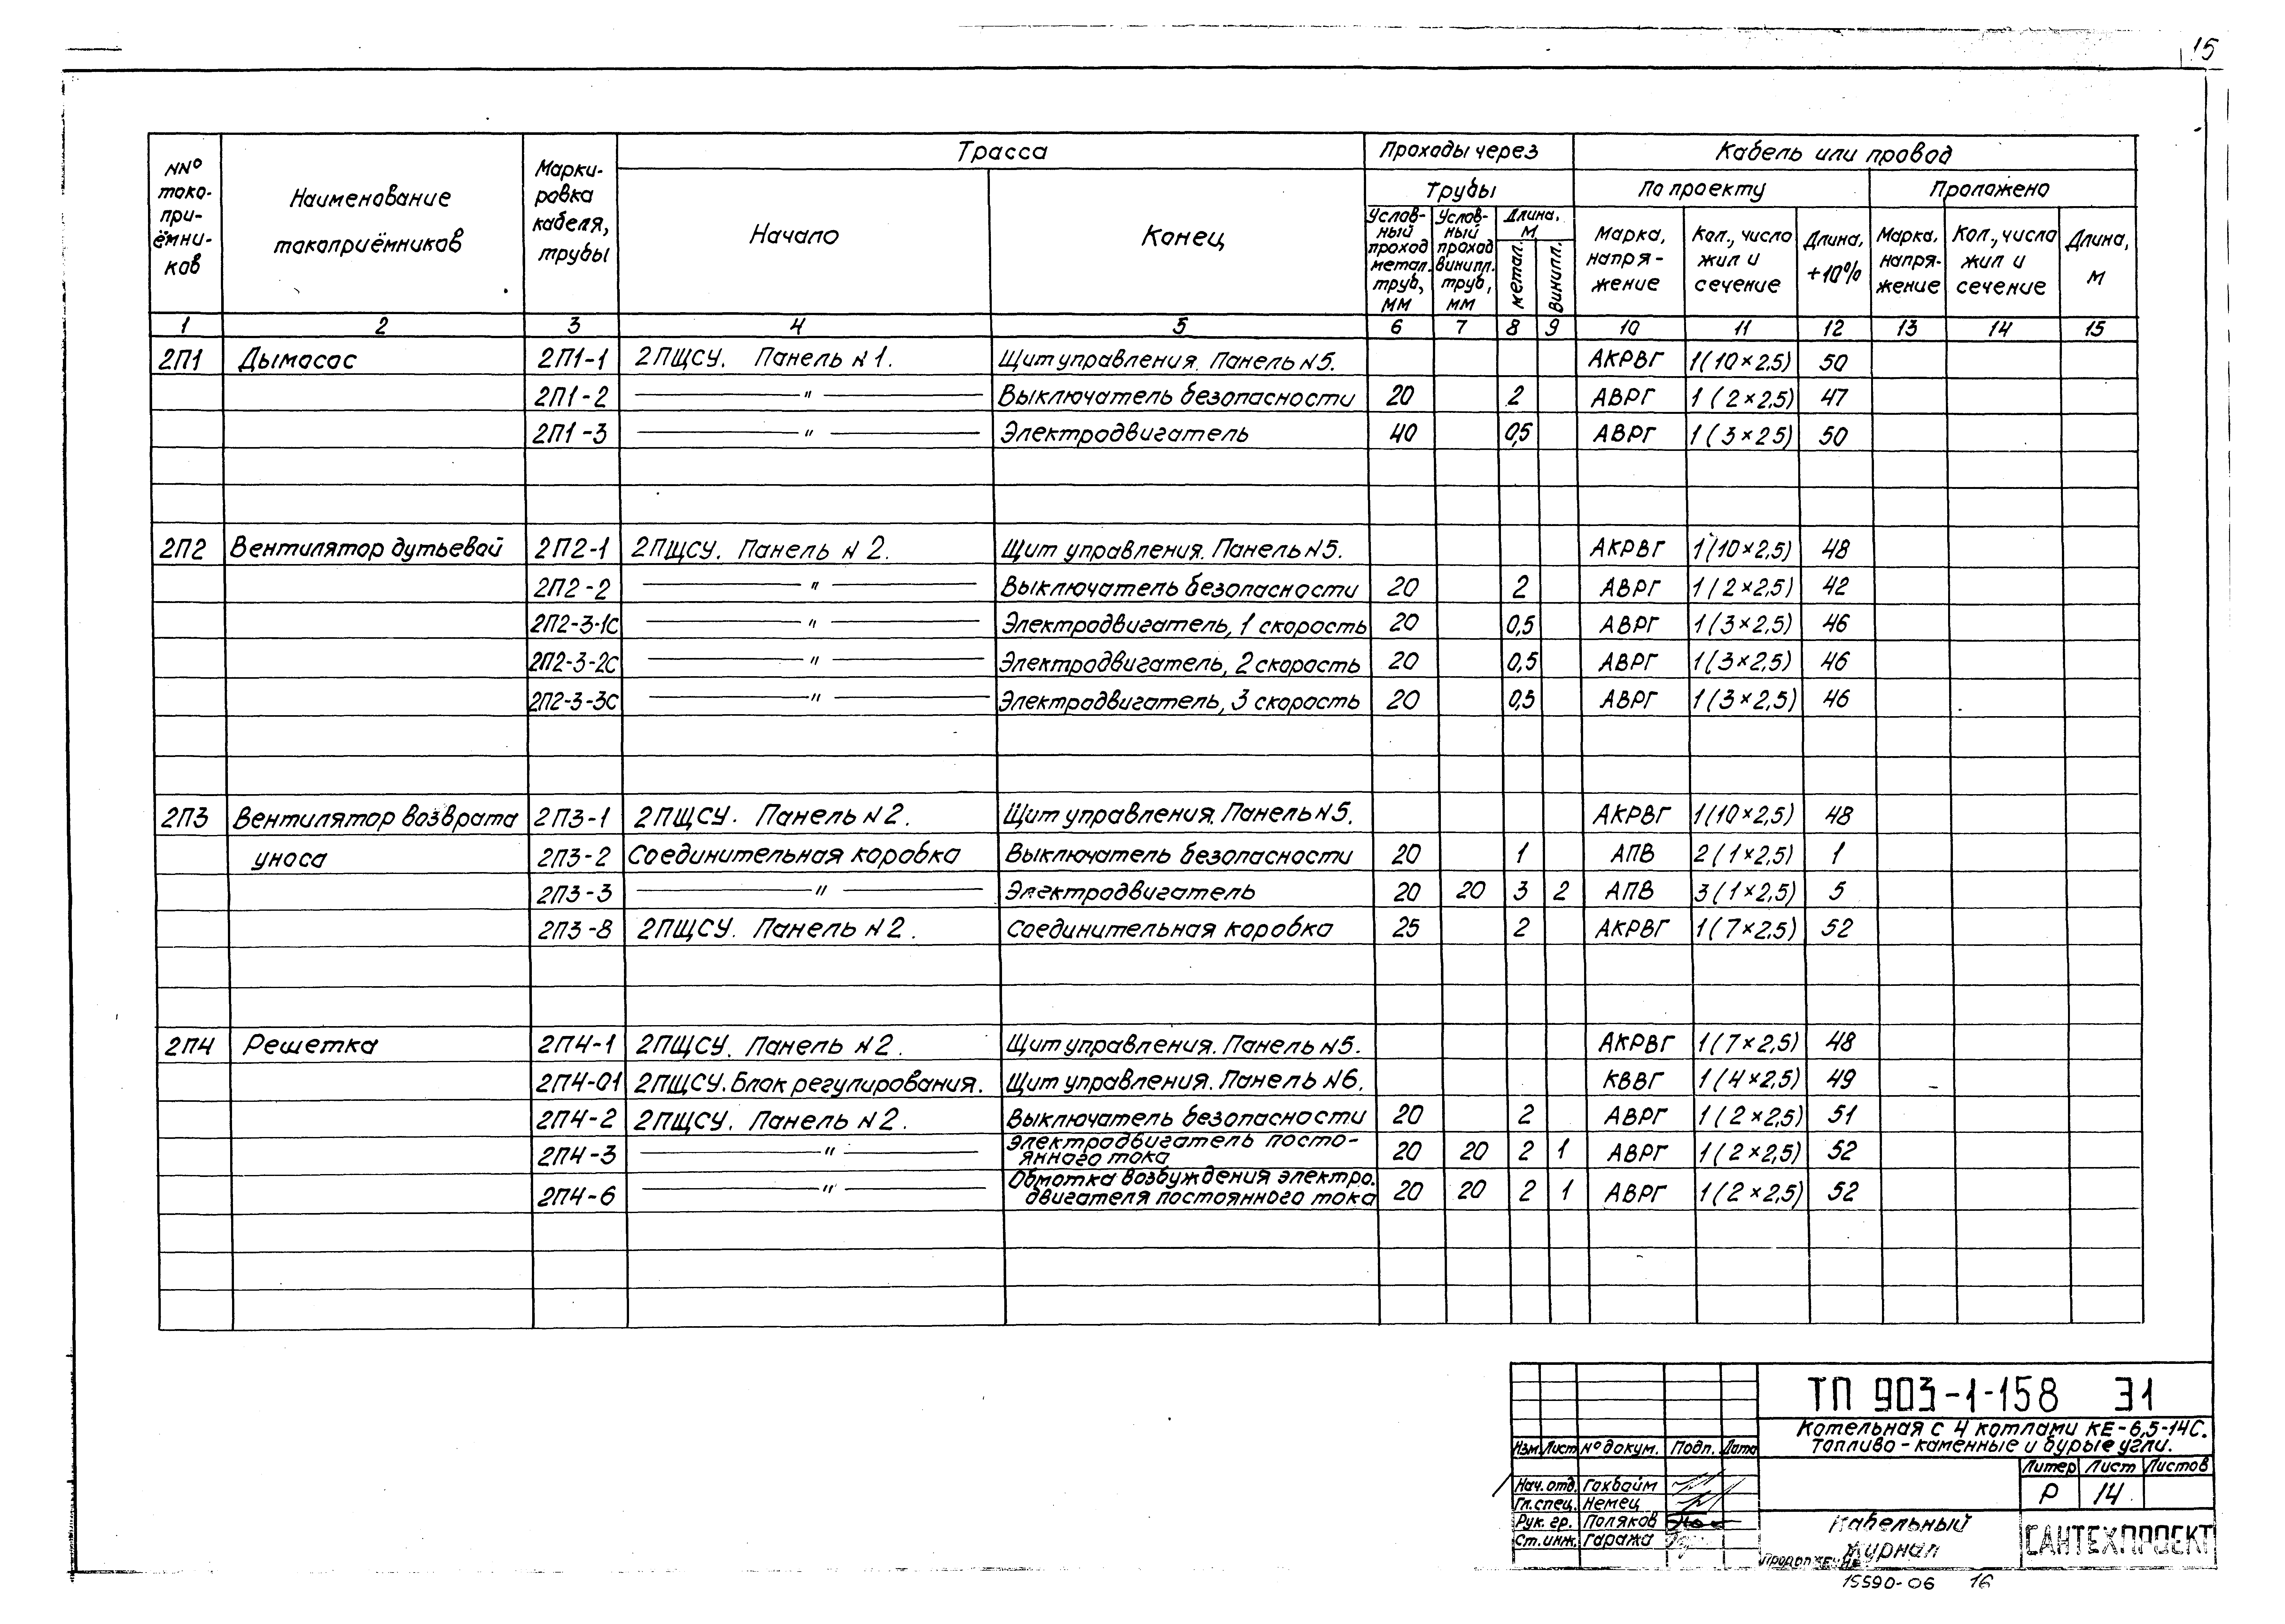 15
NNº токо-при-ёмни-ков
Наименование токоприёмников
Марки-ровка кабеля, трубы
Трасса
Начало
Конец
Проходы через трубы
Услов-ный проход метал. труб, мм
Услов-ный проход винипл. труб, мм
Длина, м
метал.
винипл.
Кабель или провод
По проекту
Проложено
Марка, напря-жение
Кол., число жил и сечение
Длина, +10%
Марка, напря-жение
Кол., число жил и сечение
Длина, м
1 2 3 4 5 6 7 8 9 10 11 12 13 14 15
2П1 Дымосос 2П1-1 2ПЩСУ. Панель N1. Щит управления. Панель N5. АКРВГ 1(10×2,5) 50
2П1-2 —"— Выключатель безопасности 20 2 АВРГ 1(2×2,5) 47
2П1-3 —"— Электродвигатель 40 0,5 АВРГ 1(3×25) 50
2П2 Вентилятор дутьевой 2П2-1 2ПЩСУ. Панель N2. Щит управления. Панель N5. АКРВГ 1(10×2,5) 48
2П2-2 —"— Выключатель безопасности 20 2 АВРГ 1(2×2,5) 42
2П2-3-1С —"— Электродвигатель, 1 скорость 20 0,5 АВРГ 1(3×2,5) 46
2П2-3-2С —"— Электродвигатель, 2 скорость 20 0,5 АВРГ 1(3×2,5) 46
2П2-3-3С —"— Электродвигатель, 3 скорость 20 0,5 АВРГ 1(3×2,5) 46
2П3 Вентилятор возврата 2П3-1 2ПЩСУ. Панель N2. Щит управления. Панель N5. АКРВГ 1(10×2,5) 48
уноса 2П3-2 Соединительная коробка Выключатель безопасности 20 1 АПВ 2(1×2,5) 1
2П3-3 —"— Электродвигатель 20 20 3 2 АПВ 3(1×2,5) 5
2П3-8 2ПЩСУ. Панель N2. Соединительная коробка 25 2 АКРВГ 1(7×2,5) 52
2П4 Решетка 2П4-1 2ПЩСУ. Панель N2. Щит управления. Панель N5. АКРВГ 1(7×2,5) 48
2П4-01 2ПЩСУ. Блок регулирования. Щит управления. Панель N6. КВВГ 1(4×2,5) 49
2П4-2 2ПЩСУ. Панель N2. Выключатель безопасности 20 2 АВРГ 1(2×2,5) 51
2П4-3 —"— Электродвигатель посто-янного тока 20 20 2 1 АВРГ 1(2×2,5) 52
2П4-6 —"— Обмотка возбуждения электро-двигателя постоянного тока 20 20 2 1 АВРГ 1(2×2,5) 52
ТП 903-1-158 Э1
Котельная с 4 котлами КЕ-6,5-14С.
Топливо - каменные и бурые угли.
Изм. Лист № докум. Подп. Дата
Литер Лист Листов
Р 14
Нач. отд. Гохбойм
Гл. спец. Немец
Рук. гр. Поляков
Ст. инж. Гаража
Кабельный
журнал
САНТЕХПРОЕКТ
15590-06 16